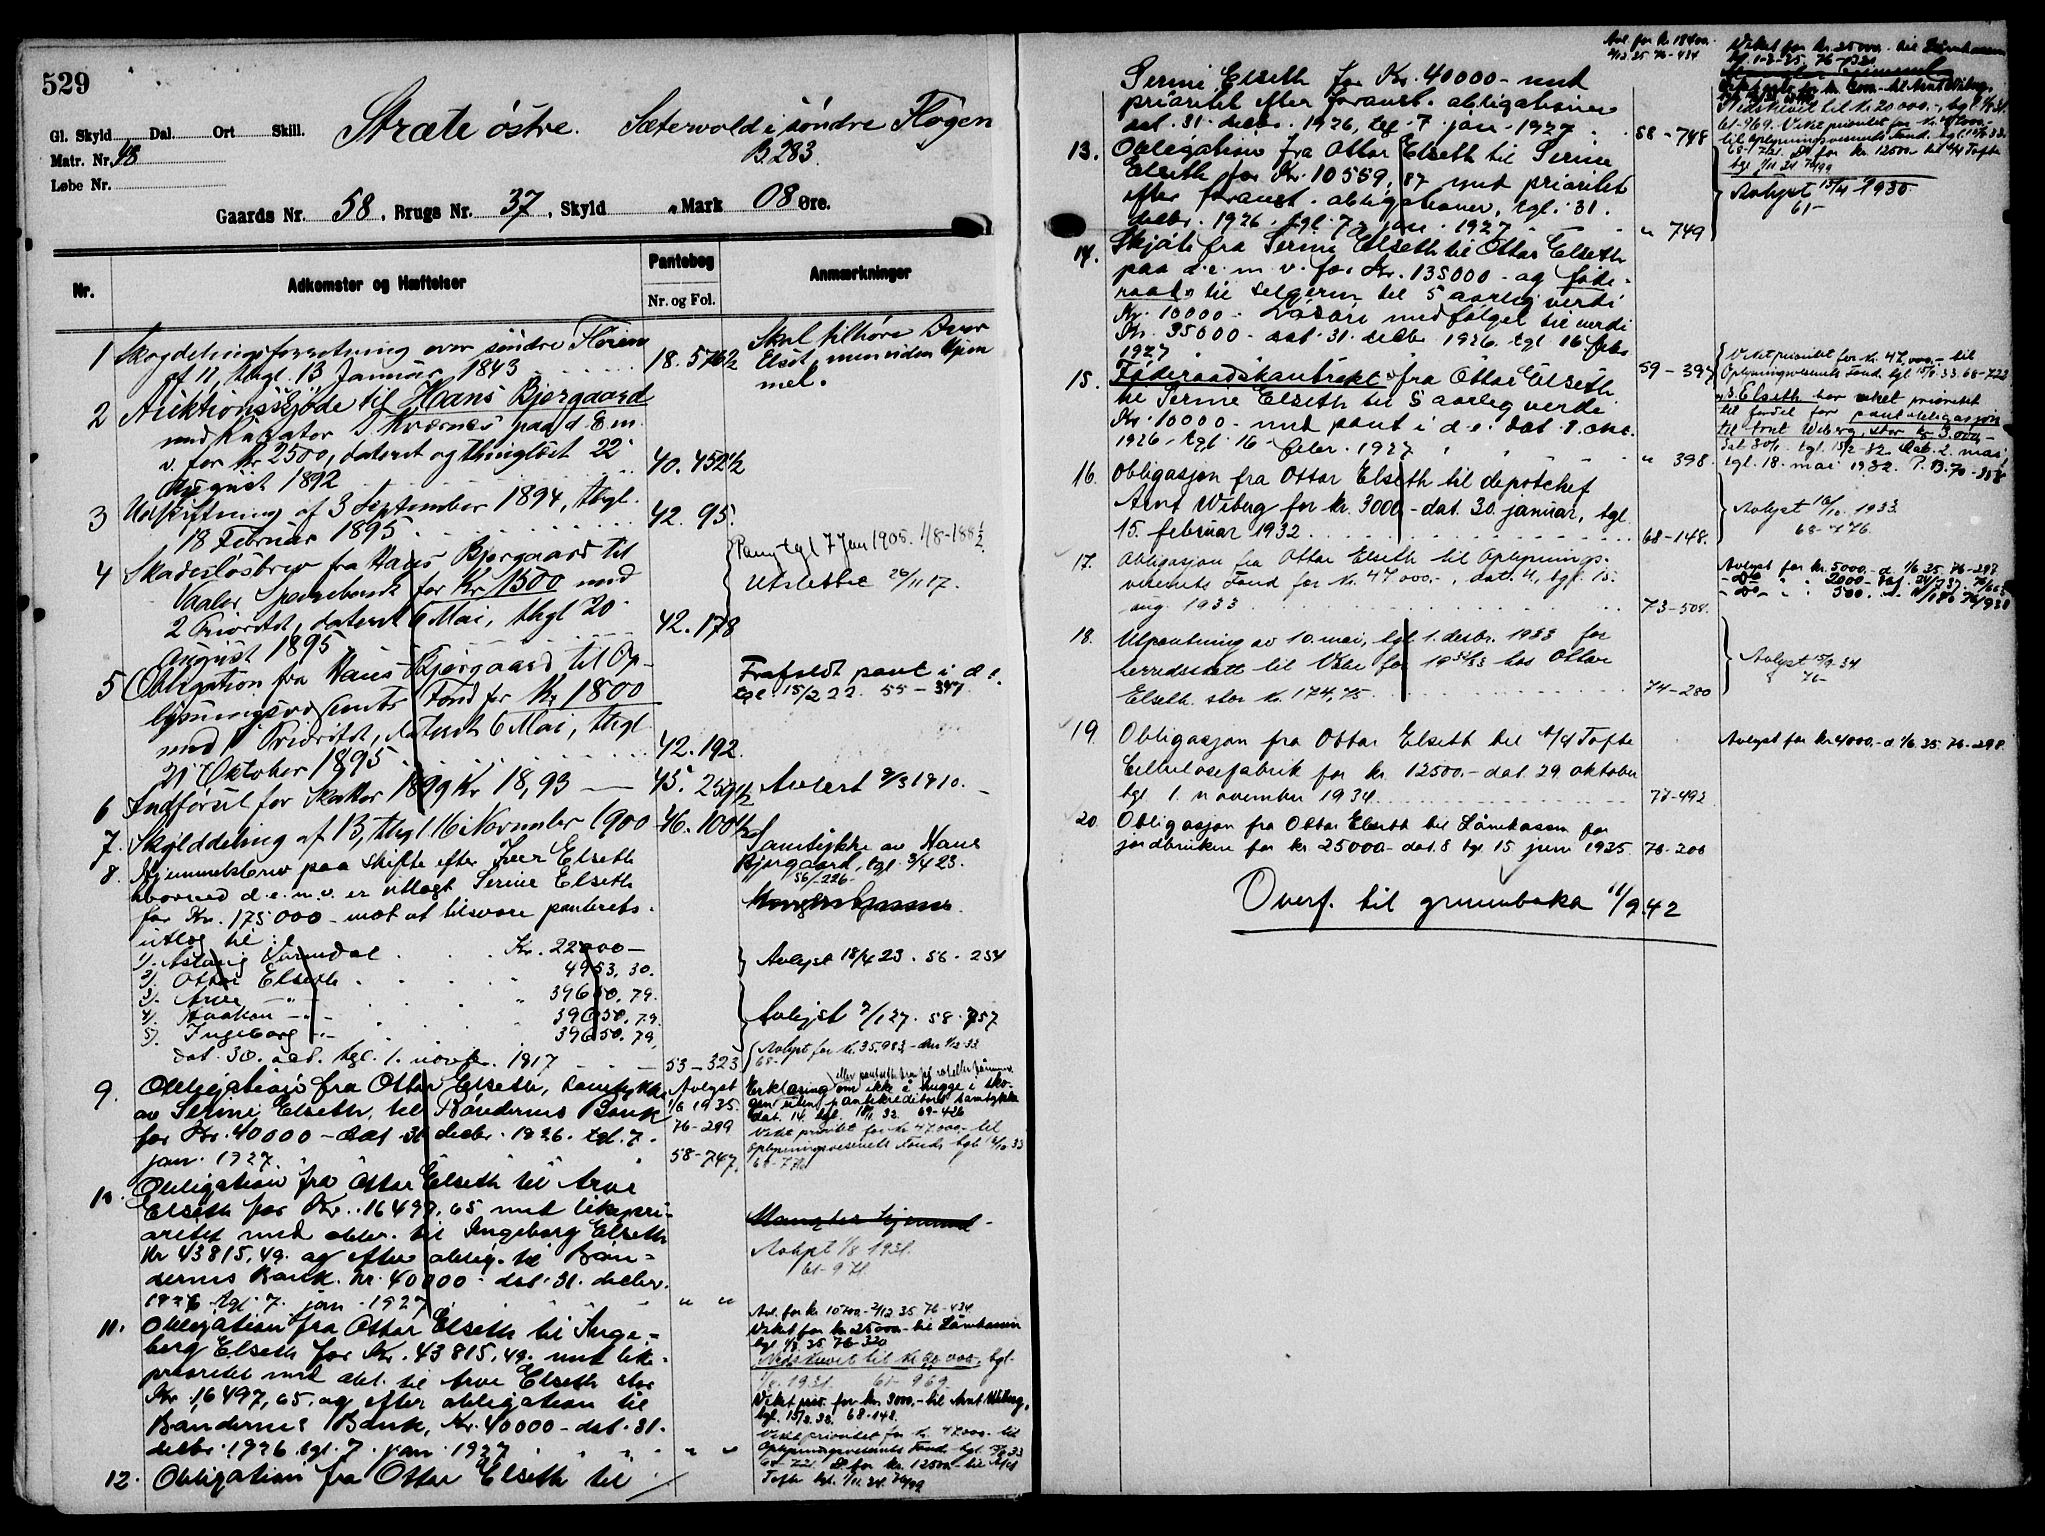 529
Gl. Skyld Dal. Ort Skill.
Stræte østre. Sætervold i søndre Flogen
Matr. Nr. 48
B 283.
Løbe Nr.
Gaards Nr. 58, Brugs Nr. 37, Skyld Mark 08 Øre.
Nr. Adkomster og Hæftelser Pantebog Anmærkninger
Nr. og Fol.
1 Skogdelingsforretning over søndre Floien
af 11, thgl. 13 Januar 1843 18. 576½
Skal tilhøre Iver
Elset, men uden Hjem
mel.
2 Auktionsskjøde til Haans Bjørgaard
med Kvæsnes paa d. e. m.
v. for Kr 2500, dateret og thinglæst 22
August 1892 40. 452½
3 Udskiftning af 3 September 1894, thgl.
18 Februar 1895 42. 95.
4 Skadesløsbrev fra Hans Bjørgaard til
Vaaler Sparebank for Kr. 1500 med
2 Prioritet, dateret 6 Mai, thgl 20
August 1895 42. 178
tgl 7 Jan 1905. 1/8-188½
Utslettet 26/11 17.
5 Obligation fra Hans Bjørgaard til Op-
lysningsvæsenets Fond for Kr 1800
med 1 Prioritet, dateret 6 Mai, thgl
21 Oktober 1895 42. 192
Frafaldt pant i d. e.
tgl 15/2 22. 55-347.
6 Indførsel for Skatter 1899 Kr 18,93 45. 259½
Avlæst 9/3 1910.
7. Skylddeling af 13, thgl 16 November 1900 46. 100½
8. Hjemmelsbrev paa skifte efter Iver Elseth
hvorved d. e. m. v. er utlagt Serine Elseth
for Kr. 175000 - mot at tilsvare panterets-
utlæg til:
Samtykke av Hans
Bjørgaard, tgl. 3/4 23.
56-226-
1). Aslaug Kr. 22000-
2). Ottar Elseth 4953,30.
3). Arve -"- " 39650,79.
4). Haakon -"- 39650,79.
5). Ingeborg -"- 39650,79.
dat. 30. okt. tgl. 1. novbr. 1917 53-323
Avlyst 18/4 23. 56-254
Avlyst 7/1 27. 58-757
Avlyst for kr. 35.983,-
68-
9. Obligation fra Ottar Elseth, samtykke
av Serine Elseth, til Bøndernes Bank
for Kr. 40000 - dat. 31 decbr. 1926. tgl. 7.
jan. 1927. 58-747.
Avlyst
1/6 1935.
76-299
Erklæring om ikke å hugge i sko-
gen uten pantekreditors samtykke
dat. 14. tgl. 18/1 32. 69-426
Veket prioritet for kr 47.000,- til
Oplysningsvesenets Fond, tgl.
10. Obligation fra Ottar Elseth til Arve
Elseth for Kr. 16497,65 med likepri-
oritet med obl. til Ingeborg Elseth
Kr 43815,49. og efter oblig. til Bøn-
dernes Bank. Kr. 40000 - dat. 31. decbr.
1926 tgl. 7. jan. 1927 " "
Mangler hjemmel -
Avlyst 1/8 1931.
61-971.
11. Obligation fra Ottar Elseth til Inge-
borg Elseth for Kr. 43815,49. med like-
prioritet med obl. til Arve Elseth stor
Kr. 16497,65, og efter obligation til
Bøndernes Bank, Kr. 40000 - dat. 31.
decbr. 1926 tgl. 7. jan. 1927 " "
Avl. for kr. 10400.- 2/12 35. 76-434
Veket for kr. 25000.- til Lånekassen
tgl. 1/8 35. 76-320
Nedskrevet til kr 20 000,- tgl.
1/8. 1931. 61-969.
Veket prior. for kr. 3000,- til Arnt Wiberg,
tgl. 15/2 32. 68-148.
Veket prioritet for kr. 47.000.- til
Oplysningsvesenets Fond. tgl.
for kr. 12500.- til A/S
Tofte tgl. 1/11 34.
12. Obligation fra Ottar Elseth til
Serine Elseth for Kr. 40000 - med
prioritet efter foranst. obligationer
dat. 31. decbr. 1926, tgl. 7. jan. 1927 58-748
Avl. for kr 18400.
2/12 35 76-434
Veket for kr. 25000.- til Lånekassen
Nedskrevet til kr 20.000.-, tgl. 1/8 31.
61-969. Veket prioritet for kr. 47.000.-
til Oplysningsvesenets Fond.
for kr. 12500 til A/S Tofte
13. Obligation fra Ottar Elseth til Serine
Elseth for Kr. 10559,87 med prioritet
efter foranst. obligationer, tgl. 31.
decbr. 1926 tgl. 7. jan. 1927 " 749
Avlyst 15/4 1930.
61-
14. Skjøte fra Serine Elseth til Ottar Elseth
paa d. e. m. v. for Kr. 135000 - og føde-
raad til selgeren til 5 aarlig verdi
Kr. 10000 - Løsøre medfølger til verdi
Kr. 35000 - dat. 31. decbr. 1926. tgl 16 febr.
1927 59-397
15. Føderaadskontrakt fra Ottar Elseth
til Serine Elseth til 5 aarlig verdi
Kr. 10000 - med pant i d. e. dat. 8. okt.
1926, tgl. 16. febr. 1927 " 398.
Veket prioritet for kr. 47.000.- til
Oplysningsvesenets Fond. tgl. 15/8 33. 68-722
S. Elseth har veket prioritet
til fordel for pantobligasjon
til Arnt Wiberg, stor kr 3.000,-
dat 30/1. tgl. 15/2-32. Dat. 2. mai,
tgl. 18. mai 1932. P.B. 70-358
16. Obligasjon fra Ottar Elseth til depotchef
Arnt Wiberg for kr. 3000 - dat. 30. januar, tgl.
15. februar 1932 68-148.
Avlyst 16/10 1933
68-776.
17. Obligasjon fra Ottar Elseth til Oplysnings-
vesenets Fond for kr. 47.000,-, dat. 4, tgl. 15.
aug. 1933 73-508.
Avlyst for kr. 5000,- d. 1/6 35. 76-297
- Do - " 2000 -
- Do - " 500.
18. Utpantning av 10. mai, tgl. 1. desbr. 1933 for
herredsskatt til Våler for 1932/33 hos Ottar
Elseth stor kr. 174,75. 74-280
Avlyst 15/9 34
76-
19. Obligasjon fra Ottar Elseth til A/S Tofte
Cellulosefabrik for kr. 12500.- dat. 29. oktober
tgl. 1. november 1934. 77-492
Avlyst for kr 4000.- d. 1/6 35. 76-298.
20. Obligasjon fra Ottar Elseth til Lånekassen for
jordbrukere for kr 25000.- dat. 8 tgl. 15 juni 1935. 76-206
Overf. til grunnboka 11/9.42